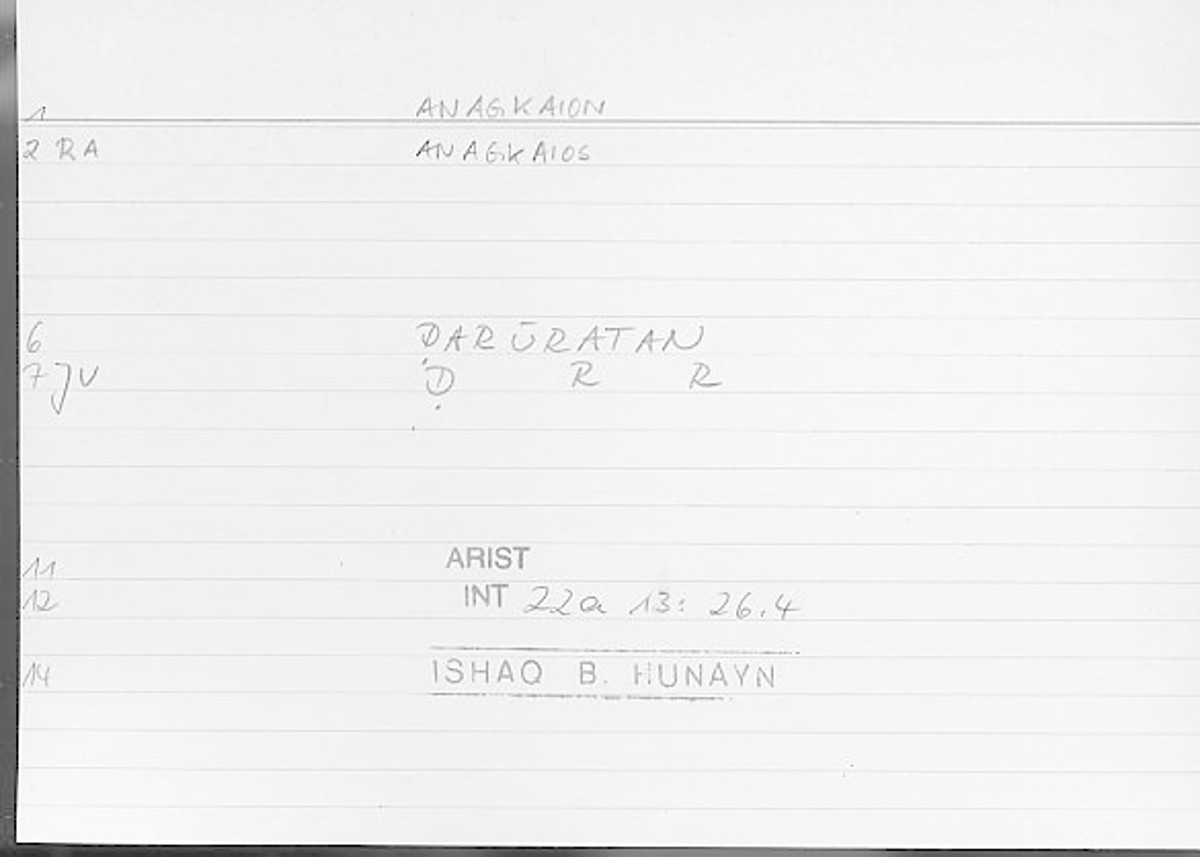 1 ANAGKAION
2 RA ANAGKAIOS
6 ḌARŪRATAN
7 JV Ḍ R R
11 ARIST
12 INT 22a 13: 26.4
14 ISHAQ B. HUNAYN